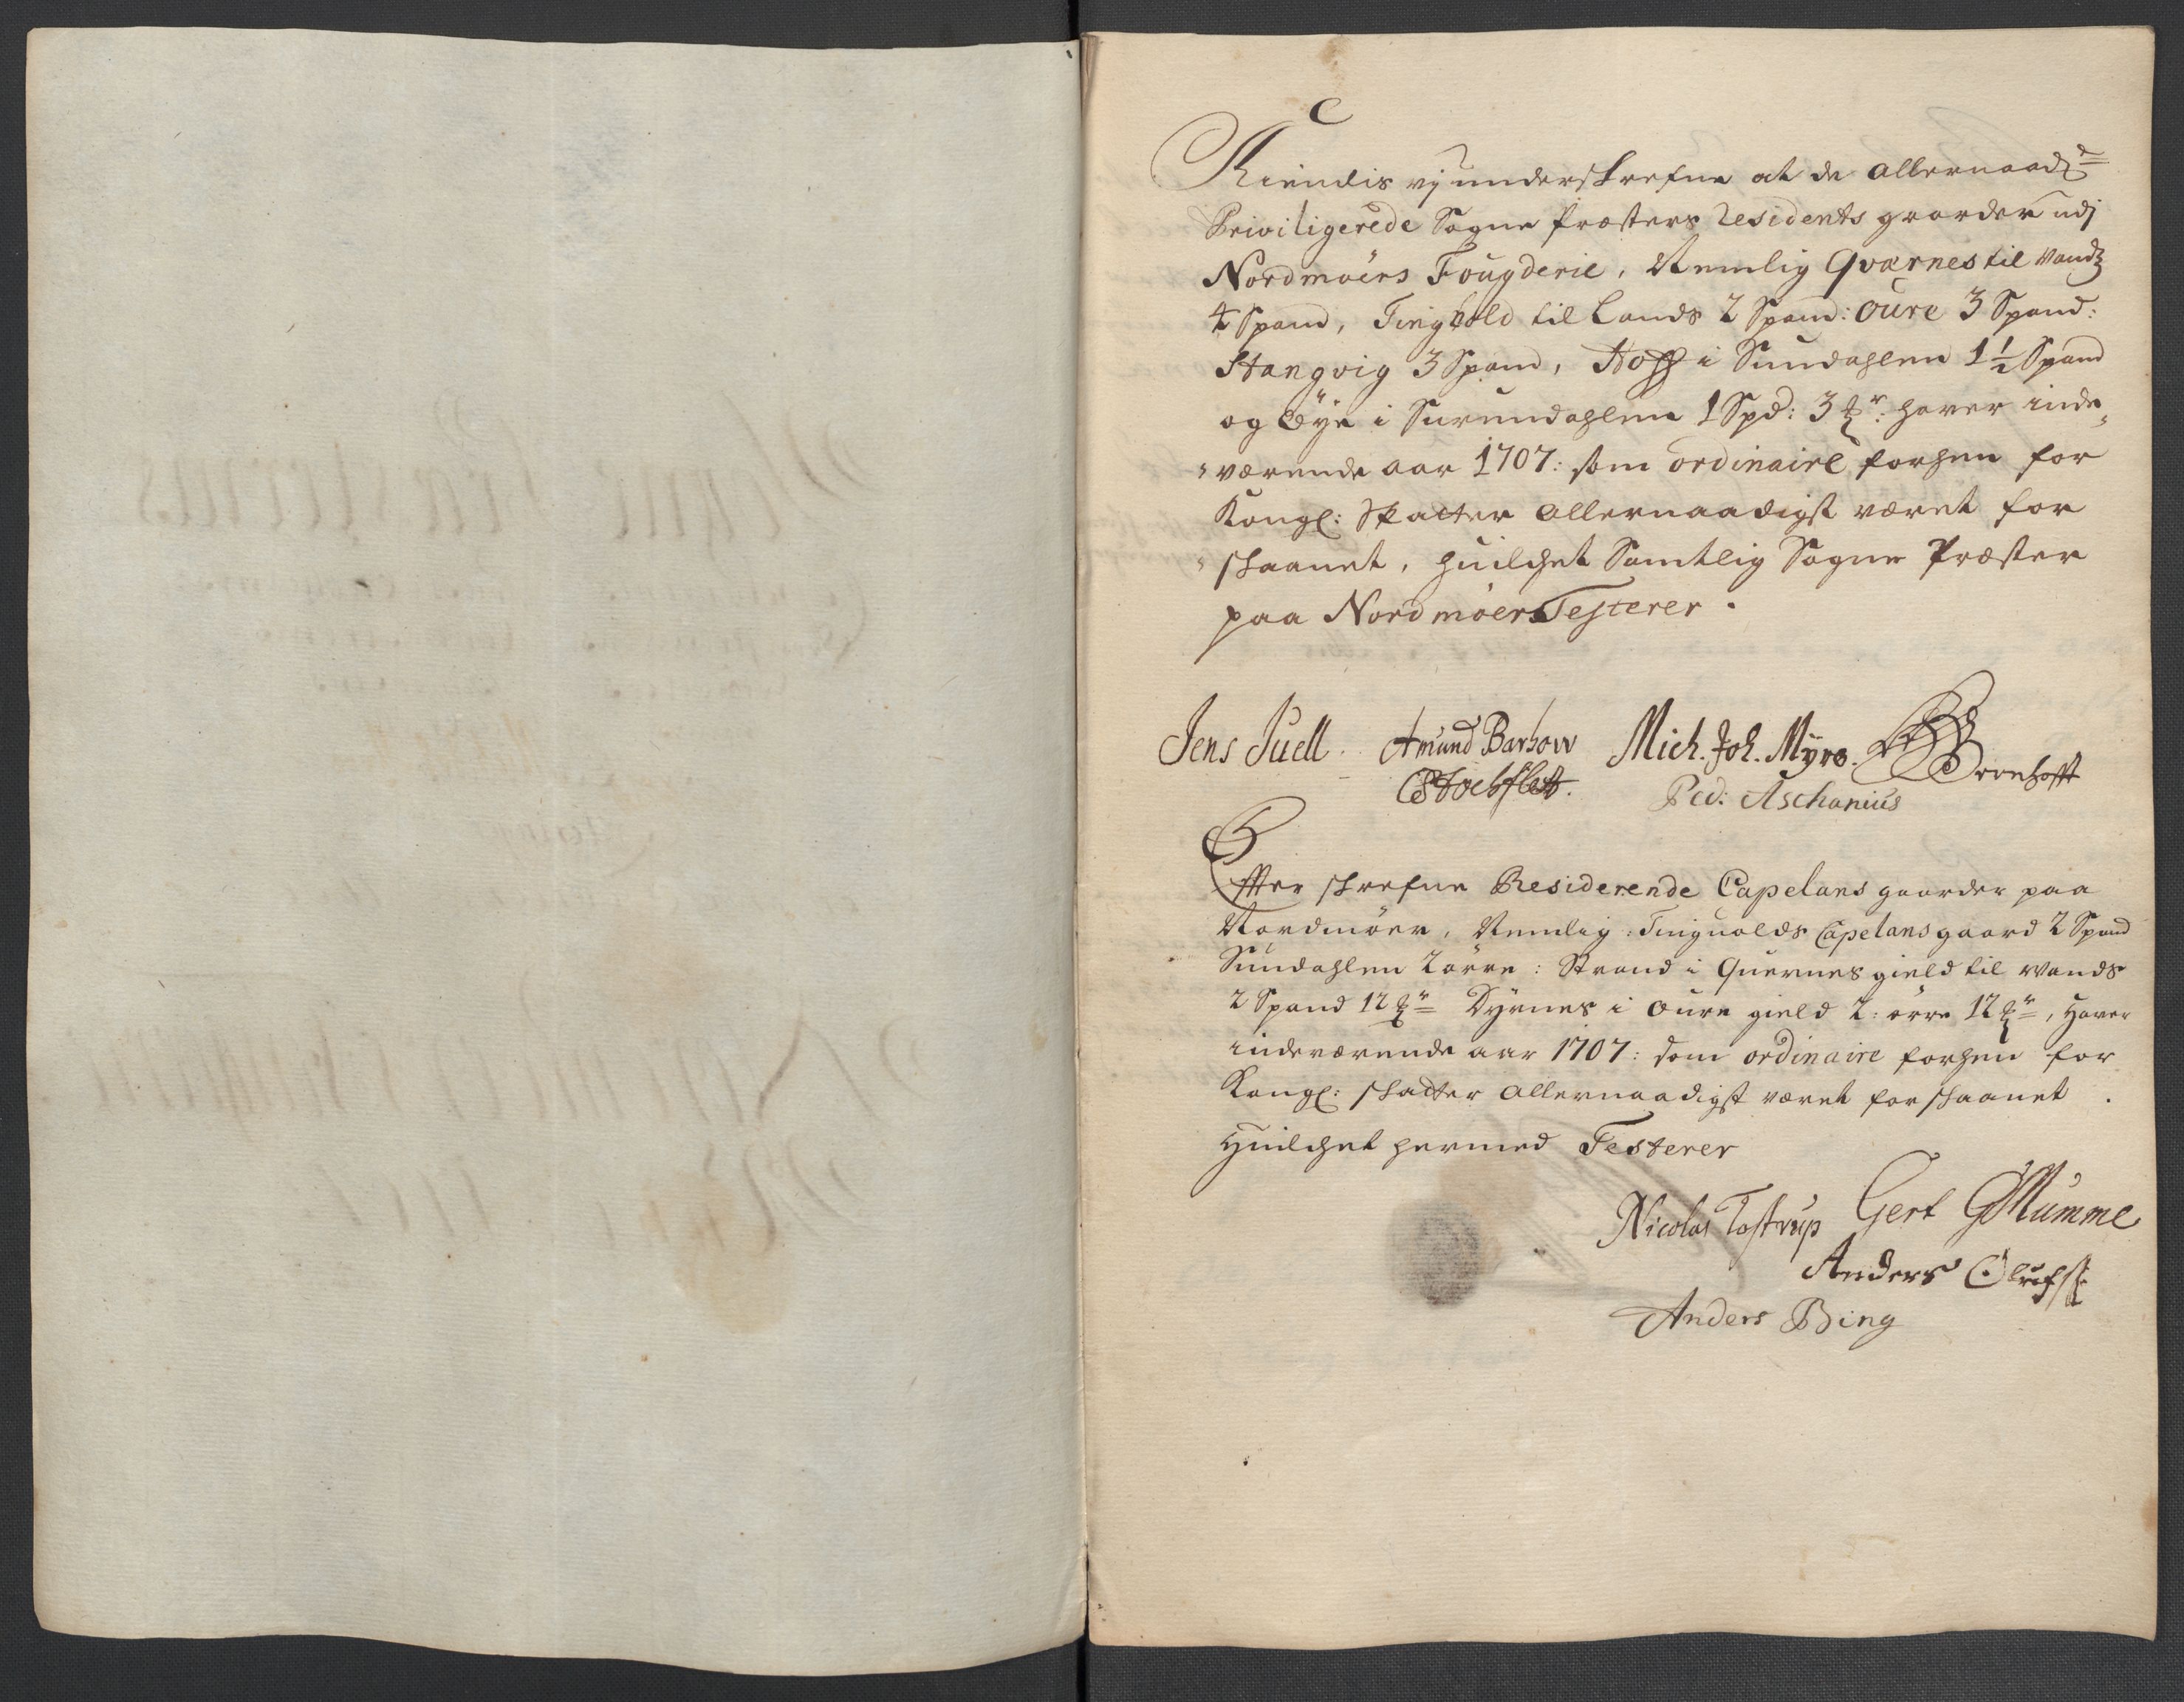 C
Kiendis vj underskrefne at de allernaadigste
Priviligerede Sogne Præsters Residents gaarder udj
Nordmøers Fougderie, Nemlig Qværnes til Vands
4 Spand, Tingvold til Lands 2 Spand: Oure 3 Spand:
Stangvig 3 Spand, Hoff i Sundahlen 1 1/2 Spand
og Øye i Surendahlene 1 Spd: 3 mkr: haver inde,,
,,værende aar 1707: som ordinaire forhen for
Kongl: Skatter allernaadigst været for
,,skaanet, huilchet Samtlig Sogne Præster
paa Nordmøer Testerer.
Jens Juell. Amund Barhow Mich. Joh. Myre.
Stochfleth. Ped: Aschanius
Effter skrefne Residerende Capelans gaarder paa
Nordmøer, Nemlig: Tinguolds Capelans gaard 2 Spand
Sundahlen 2 ørre: Strand i Quernes gield til Vands
2 Spand 12 mkr Dyrnes i Oure gield 2: ørre 12 mkr, Haver
indeværende aar 1707: som ordinaire forhen for
Kongl: skatter allernaadigst været forskaanet.
Huilchet hermed Testerer
Nicolas Tostrup Gert GMumme
Anders Olufs:
Anders Bing